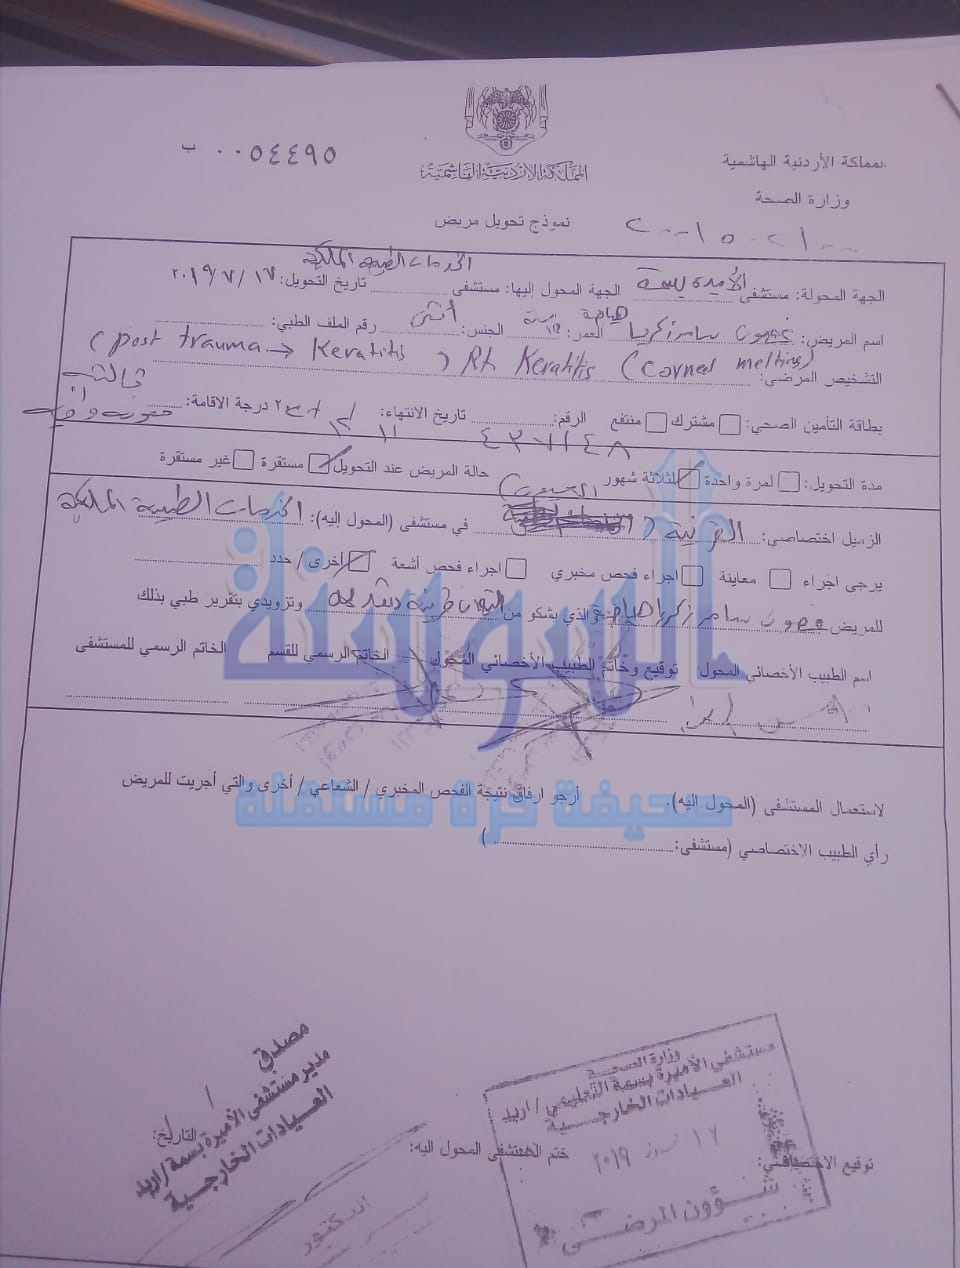 المملكة الأردنية الهاشمية
ب ٠٠٥٤٤٩٥
المملكة الأردنية الهاشمية
وزارة الصحة
نموذج تحويل مريض
الجهة المحولة: مستشفى الأميرة بسمة الجهة المحول إليها: مستشفى الخدمات الطبية الملكية تاريخ التحويل: ١٧ / ٧ / ٢٠١٩
اسم المريض: سامر زكريا العمر: سنة الجنس: أنثى رقم الملف الطبي:
التشخيص المرضي: Rt Keratitis (Corneal melting) (post trauma → Keratitis
بطاقة التأمين الصحي: مشترك منتفع الرقم: تاريخ الانتهاء: درجة الاقامة:
مدة التحويل: لمرة واحدة لثلاثة شهور حالة المريض عند التحويل: مستقرة غير مستقرة
الزميل اختصاصي: القرنية (العيون) في مستشفى (المحول إليه): الخدمات الطبية الملكية
يرجى اجراء معاينة اجراء فحص مخبري اجراء فحص أشعة أخرى / حدد
للمريض سامر زكريا والذي يشكو من التهاب وتزويدي بتقرير طبي بذلك
اسم الطبيب الأخصائي المحول: توقيع وخاتم الطبيب الأخصائي المحول الخاتم الرسمي للقسم الخاتم الرسمي للمستشفى
السوسنة
صحيفة حرة مستقلة
لاستعمال المستشفى (المحول إليه). أرجو ارفاق نتيجة الفحص المخبري / الشعاعي / أخرى والتي أجريت للمريض
رأي الطبيب الاختصاصي (مستشفى: )
توقيع الاختصاصي: ختم المستشفى المحول اليه: التاريخ:
وزارة الصحة
مستشفى الأميرة بسمة التعليمي / اربد
العيادات الخارجية
١٧ تموز ٢٠١٩
شؤون المرضى
مصدق
مدير مستشفى الأميرة بسمة / اربد
العيادات الخارجية
الدكتور